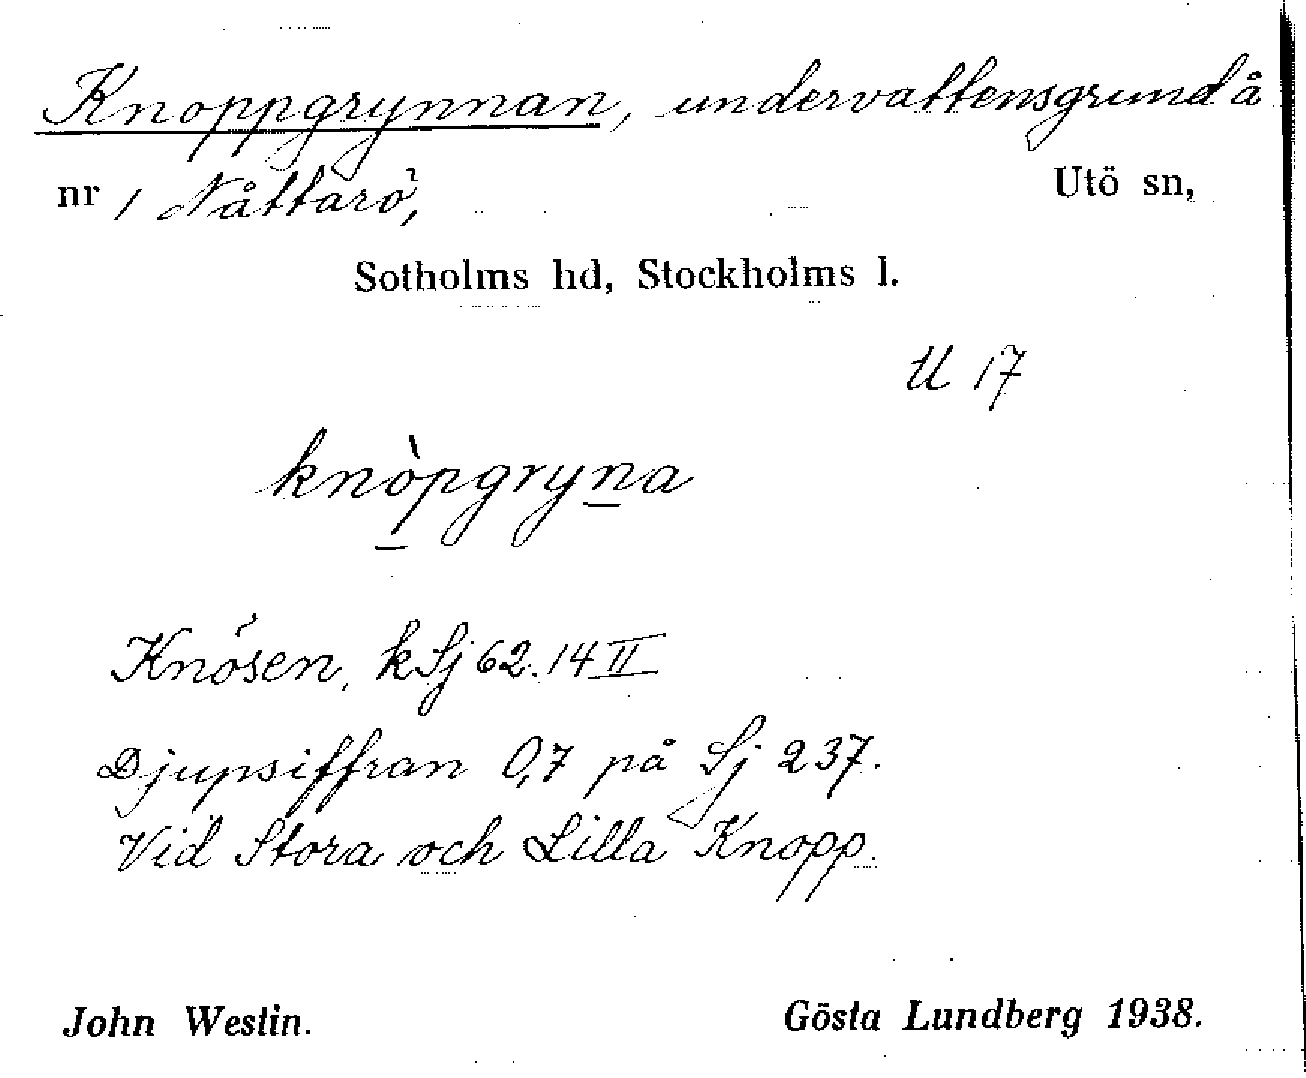 Knoppgrynnan, undervattensgrund å
nr 1 Nåttarö, Utö sn,
Sotholms hd, Stockholms l.
U 17
knòpgryna
Knösen, kSj 62.14 II
Djupsiffran 0,7 på Sj 237.
Vid Stora och Lilla Knopp.
John Westin. Gösta Lundberg 1938.